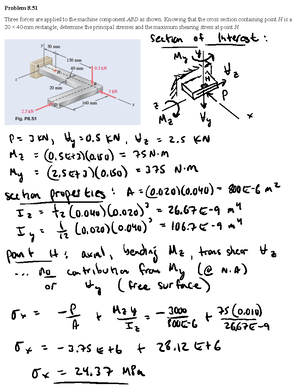 Problem 8.51
Three forces are applied to the machine component ABD as shown. Knowing that the cross section containing point H is a
20 × 40-mm rectangle, determine the principal stresses and the maximum shearing stress at point H.
section of Interest:
y
50 mm
150 mm
40 mm
0.5 kN
20 mm
160 mm
2.5 kN
3 kN
Fig. P8.51
My
Vy
H
P
z
Mz
Vz
x
P = 3 kN, Vy = 0.5 kN, Vz = 2.5 kN
Mz = (0.5E+3)(0.150) = 75 N·m
My = (2.5E+3)(0.150) = 375 N·m
section properties: A = (0.020)(0.040) = 800E-6 m²
Iz = 1/12 (0.040)(0.020)³ = 26.67E-9 m⁴
Iy = 1/12 (0.020)(0.040)³ = 106.7E-9 m⁴
point H: axial, bending Mz, trans shear Vz
... no contribution from My (@ N.A)
or Vy (free surface)
σx = -P/A + Mz y/Iz = -3000/800E-6 + 75(0.010)/26.67E-9
σx = -3.75E+6 + 28.12E+6
σx = 24.37 MPa